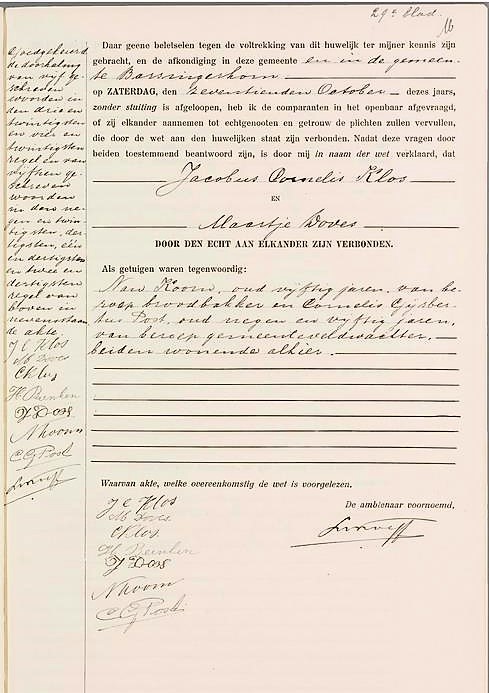 29e blad.
16
Goedgekeurd
de doorhaling
van vijf ge-
schreven
woorden in
den drieën
twintigsten
en vier en
twintigsten
regel en van
vijftien ge-
schreven
woorden
in den ne-
gen en twin-
tigsten, der-
tigsten, één
en dertigsten
en twee en
dertigsten
regel van
boven in
nevenstaan
de akte.
J C Klos
M Doves
C Klos
J Doves
N Koorn
C G Post
Daar geene beletselen tegen de voltrekking van dit huwelijk ter mijner kennis zijn
gebracht, en de afkondiging in deze gemeente en in de gemeen-
te Barsingerhorn
op ZATERDAG, den zeventienden October dezes jaars,
zonder stuiting is afgeloopen, heb ik de comparanten in het openbaar afgevraagd,
of zij elkander aannemen tot echtgenooten en getrouw de plichten zullen vervullen,
die door de wet aan den huwelijken staat zijn verbonden. Nadat deze vragen door
beiden toestemmend beantwoord zijn, is door mij in naam der wet verklaard, dat
Jacobus Cornelis Klos
EN
Maartje Doves
DOOR DEN ECHT AAN ELKANDER ZIJN VERBONDEN.
Als getuigen waren tegenwoordig:
Nan Koorn, oud vijftig jaren, van be-
roep broodbakker en Cornelis Gijsber-
tus Post, oud negen en vijftig jaren,
van beroep gemeenteveldwachter,
beiden wonende alhier.
Waarvan akte, welke overeenkomstig de wet is voorgelezen.
De ambtenaar voornoemd,
J C Klos
M Doves
C Klos
J Doves
N Koorn
C G Post